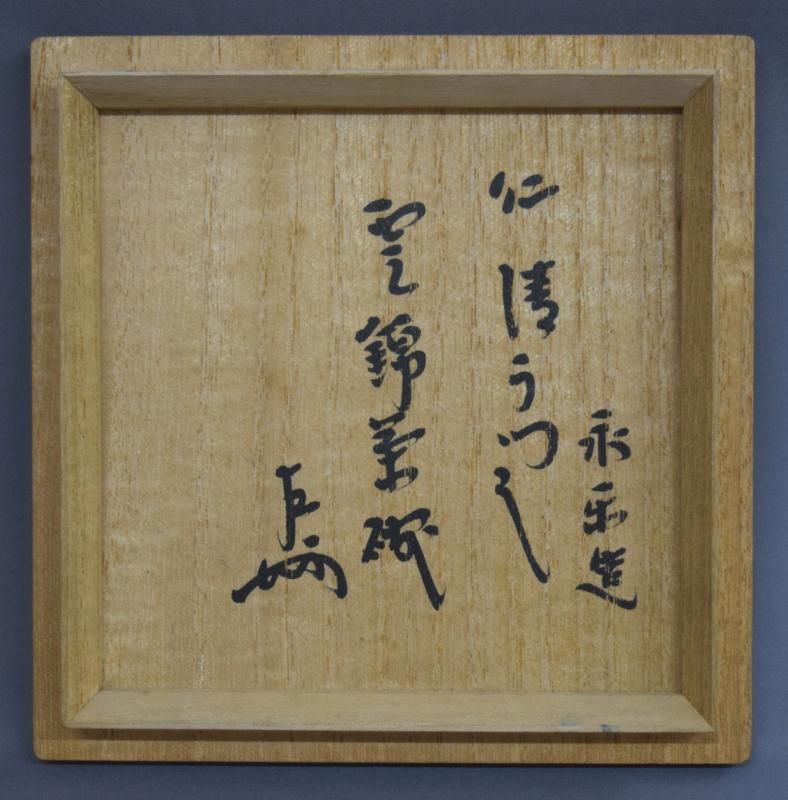 永楽造
仁清うつし
雲錦茶碗
左